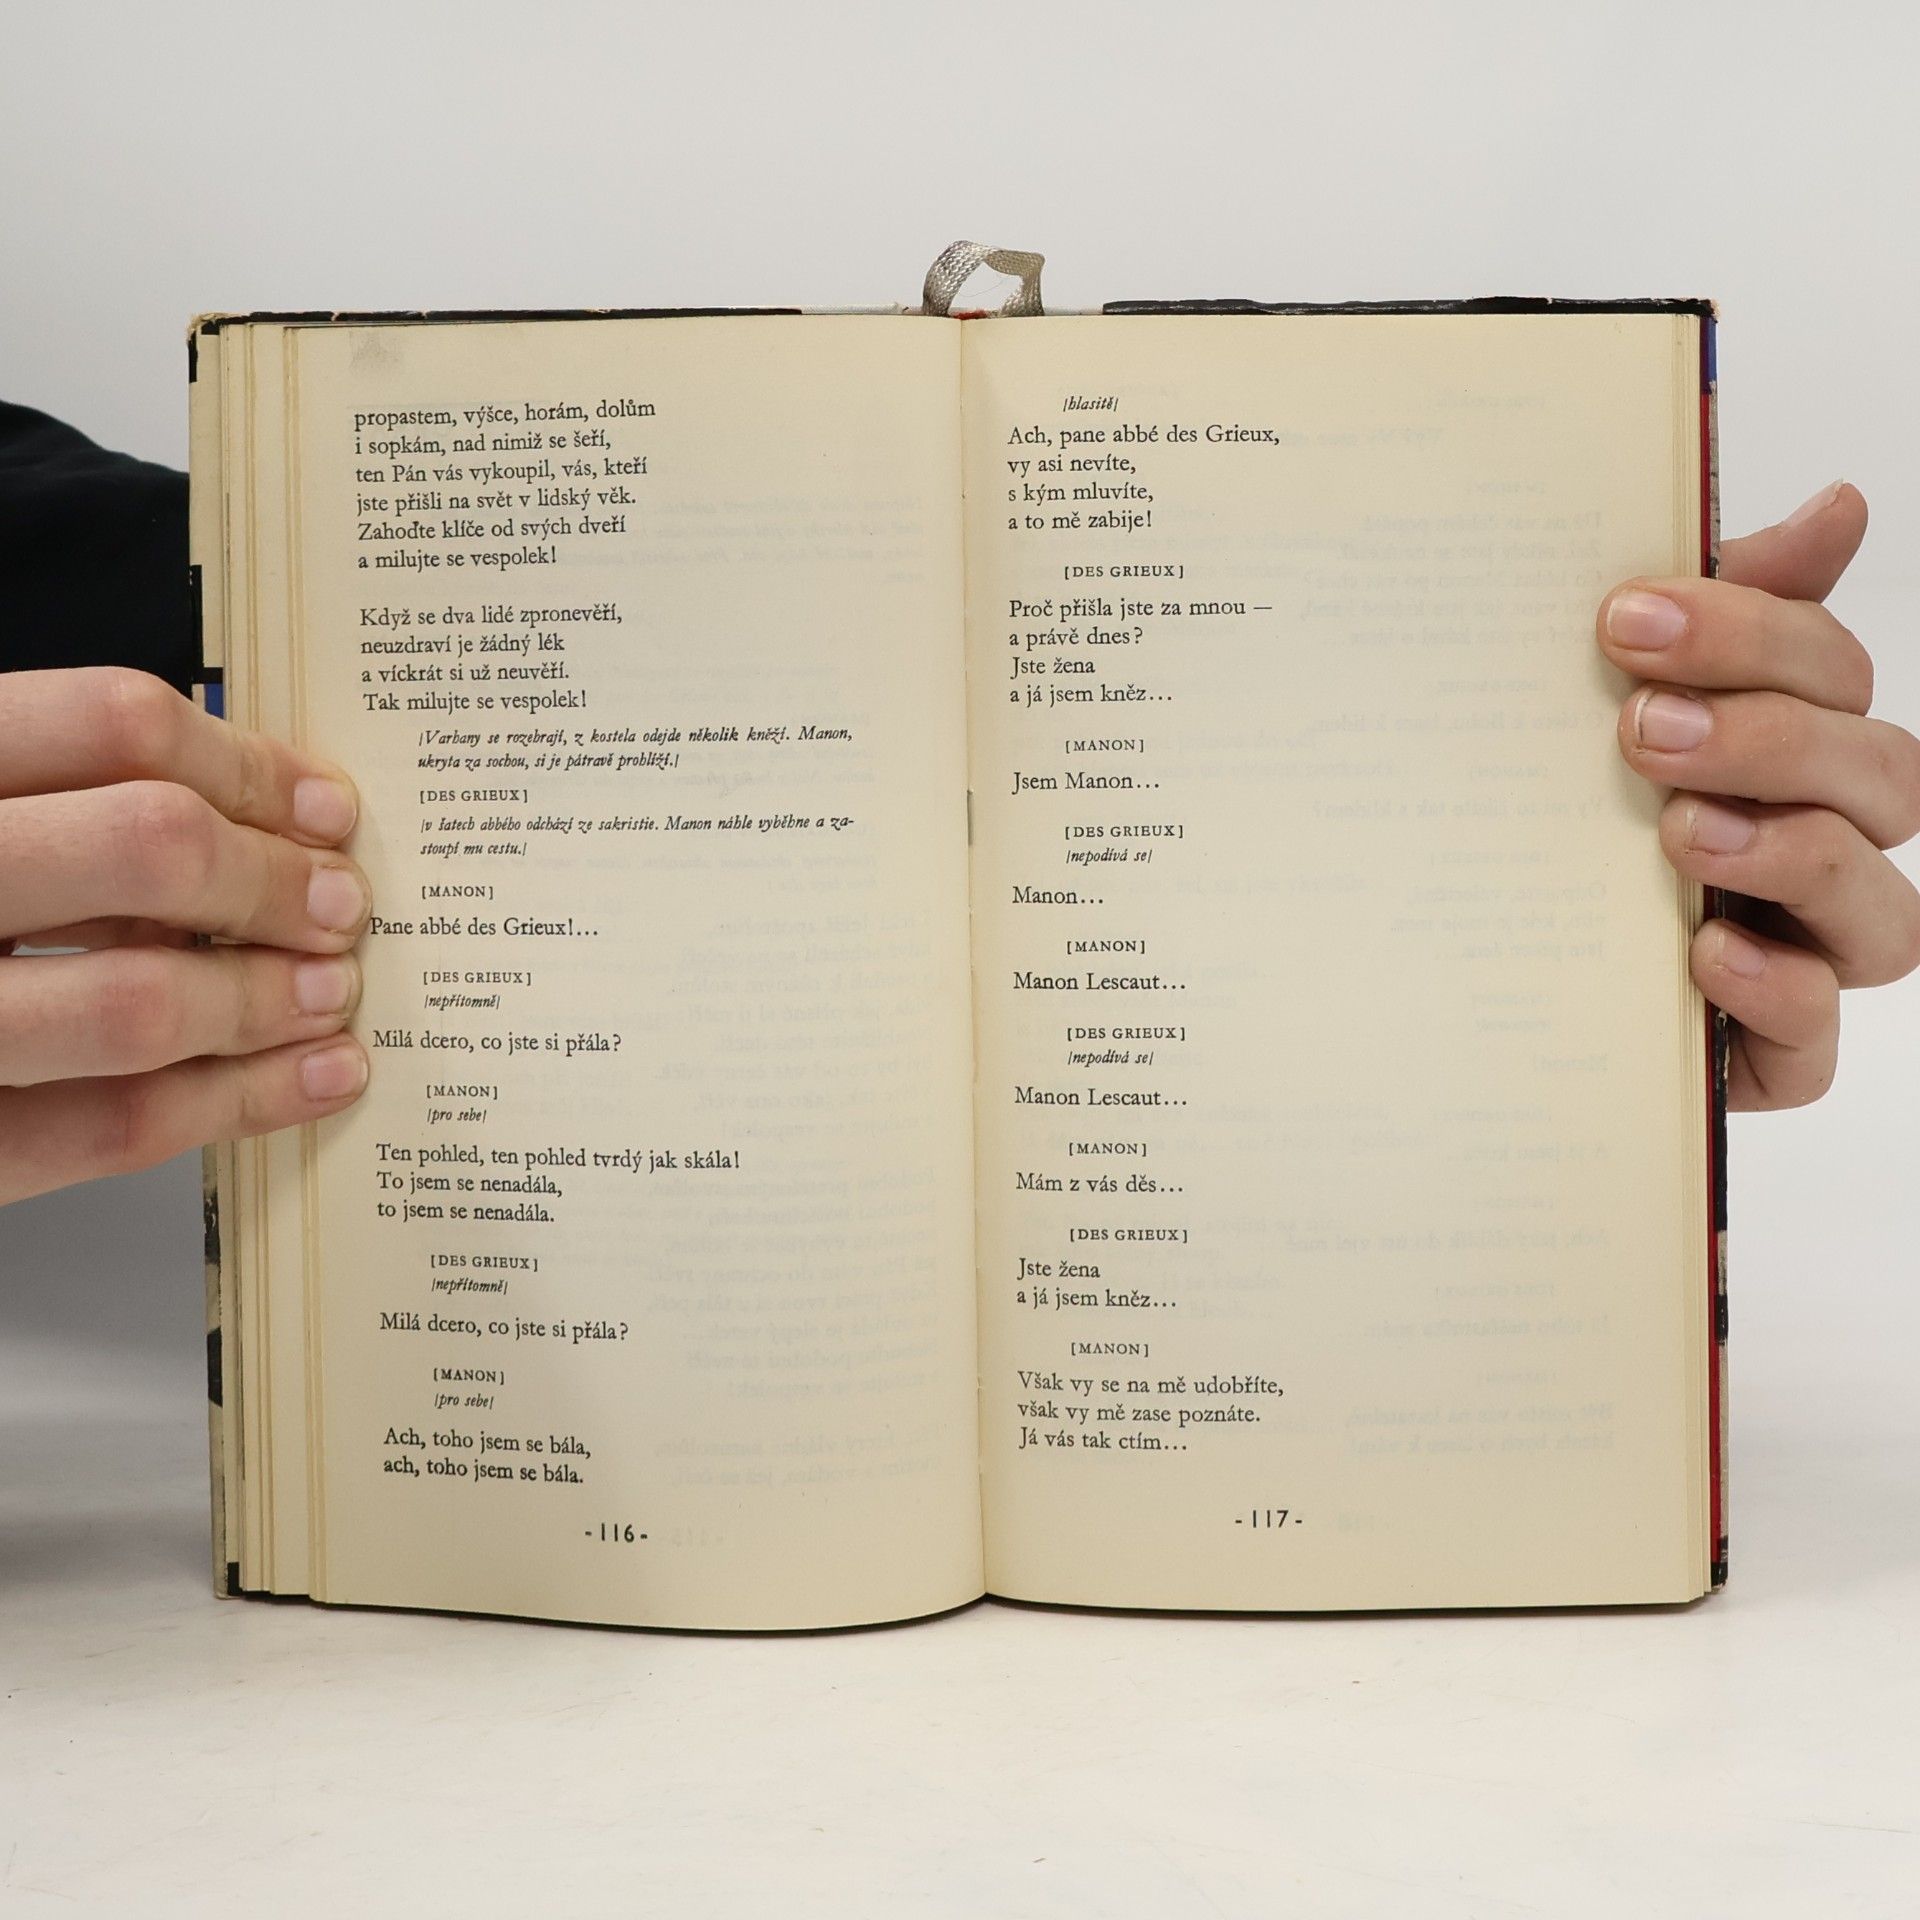 propastem, výšce, horám, dolům
i sopkám, nad nimiž se šeří,
ten Pán vás vykoupil, vás, kteří
jste přišli na svět v lidský věk.
Zahoďte klíče od svých dveří
a milujte se vespolek!
Když se dva lidé zpronevěří,
neuzdraví je žádný lék
a víckrát si už neuvěří.
Tak milujte se vespolek!
/Varhany se rozehrají, z kostela odejde několik kněží. Manon,
ukryta za sochou, si je pátravě prohlíží./
[DES GRIEUX]
/v šatech abbého odchází ze sakristie. Manon náhle vyběhne a za-
stoupí mu cestu./
[MANON]
Pane abbé des Grieux!...
[DES GRIEUX]
/nepřítomně/
Milá dcero, co jste si přála?
[MANON]
/pro sebe/
Ten pohled, ten pohled tvrdý jak skála!
To jsem se nenadála,
to jsem se nenadála.
[DES GRIEUX]
/nepřítomně/
Milá dcero, co jste si přála?
[MANON]
/pro sebe/
Ach, toho jsem se bála,
ach, toho jsem se bála.
-116-
/hlasitě/
Ach, pane abbé des Grieux,
vy asi nevíte,
s kým mluvíte,
a to mě zabije!
[DES GRIEUX]
Proč přišla jste za mnou —
a právě dnes?
Jste žena
a já jsem kněz...
[MANON]
Jsem Manon...
[DES GRIEUX]
/nepodívá se/
Manon...
[MANON]
Manon Lescaut...
[DES GRIEUX]
/nepodívá se/
Manon Lescaut...
[MANON]
Mám z vás děs...
[DES GRIEUX]
Jste žena
a já jsem kněz...
[MANON]
Však vy se na mě udobříte,
však vy mě zase poznáte.
Já vás tak ctím...
-117-